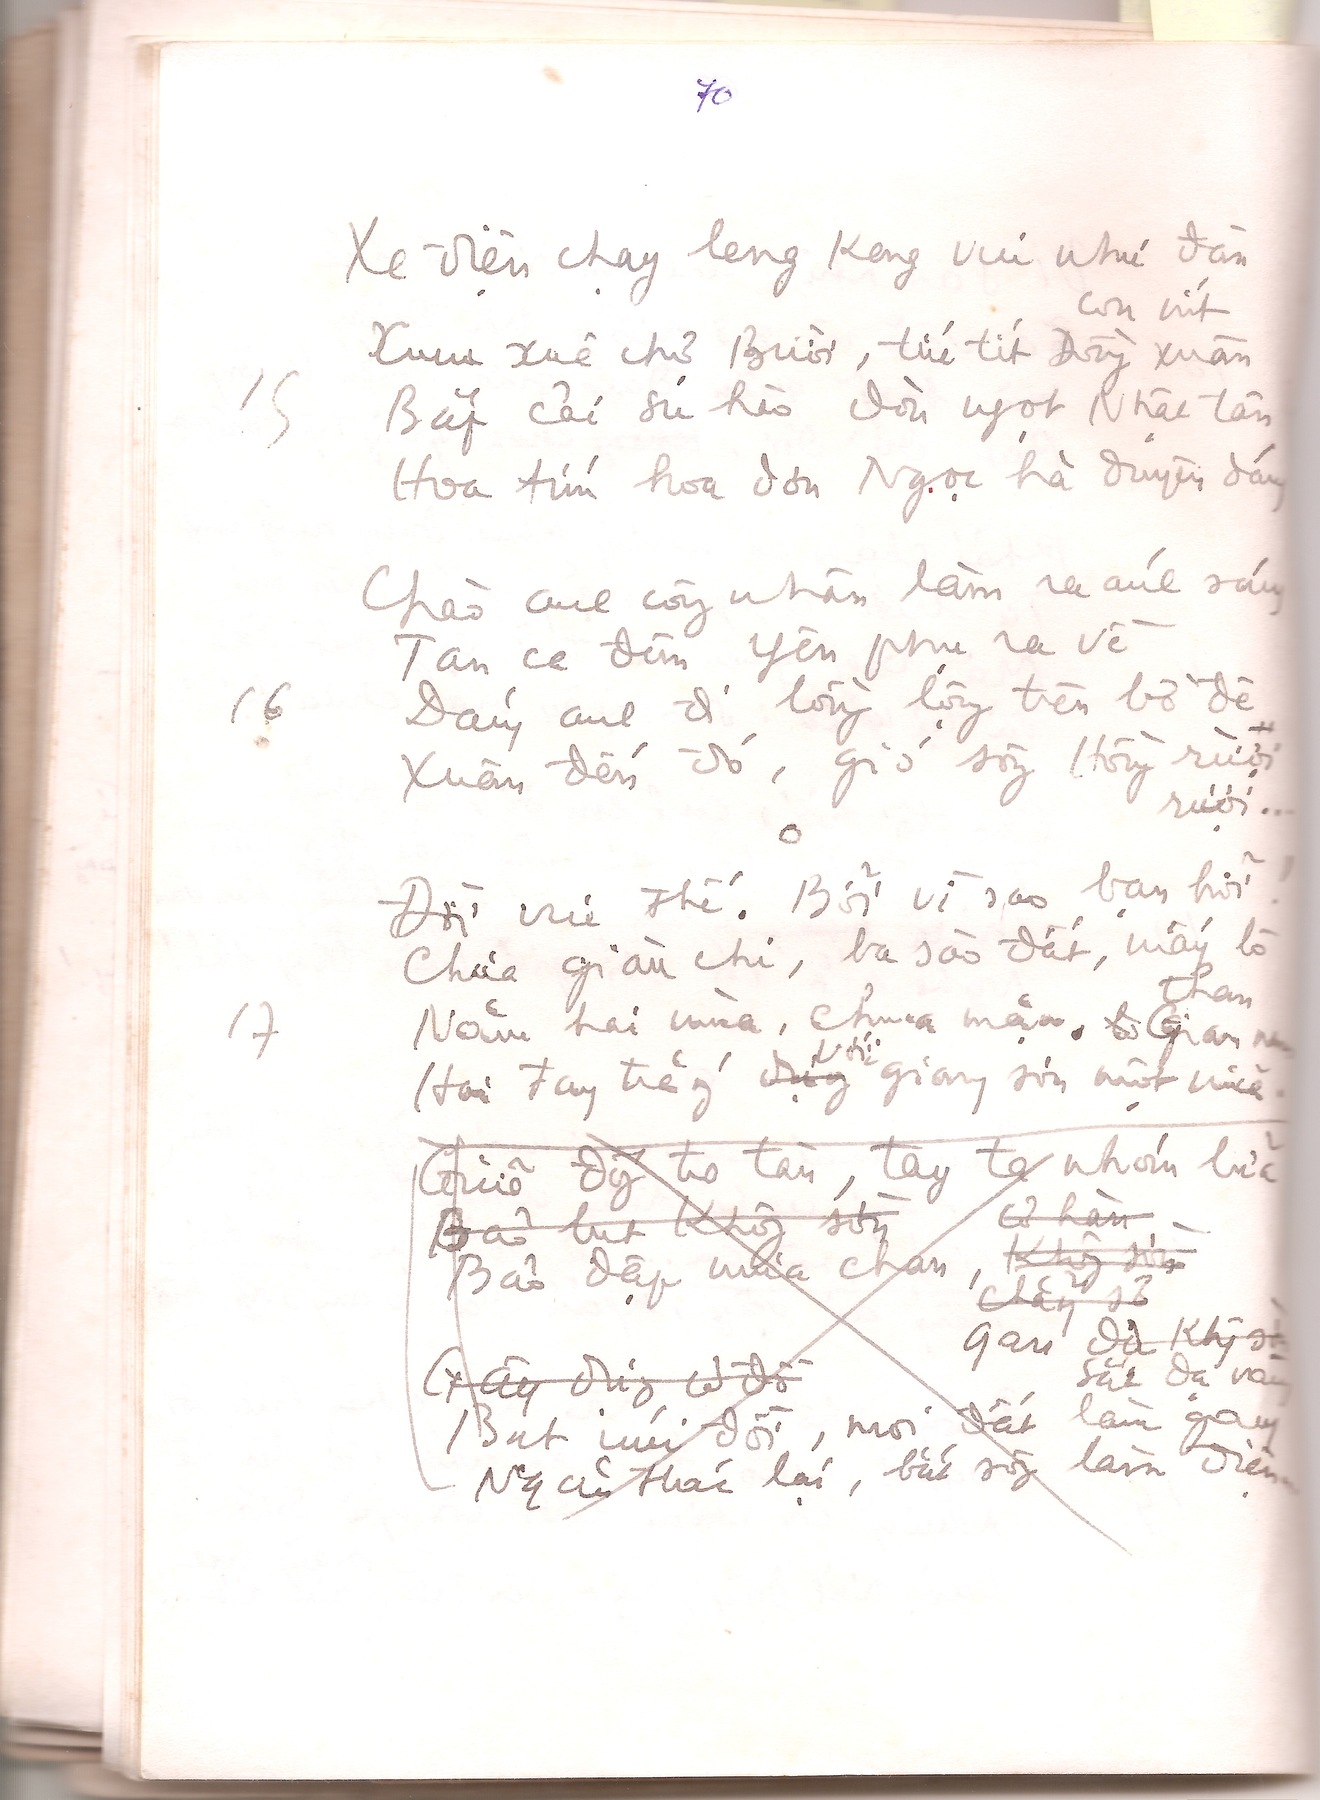 70
Xe điện chạy leng keng vui như đàn
con nít
Xum xuê chợ Bưởi, tíu tít Đồng xuân
15
Bắp cải su hào đòn ngọt Nhật tân
Hoa tím hoa đơn Ngọc hà duyên dáng
Chào anh công nhân làm ra ánh sáng
Tan ca đêm Yên phụ ra về
16
Dáng anh đi lồng lộng trên bờ đê
Xuân đến đó, gió sông Hồng rười
rượi...
Đời vui thế. Bởi vì sao bạn hỏi?
Chưa giàu chi, ba sào đất, mấy lò
than
17
Năm hai mùa, chưa mặn. Gian nan
Hai tay trắng dựng với giang sơn một mùa.
Giữa đống tro tàn, tay ta nhóm lửa
Bão lụt không sờn
cơ hàn
Bão đập mưa chan, không sờn
gan
sắt dạ vàng
Gây dựng cơ đồ
Bạt núi đồi, moi đất làm gang
Ngăn thác lại, bắt sông làm điện